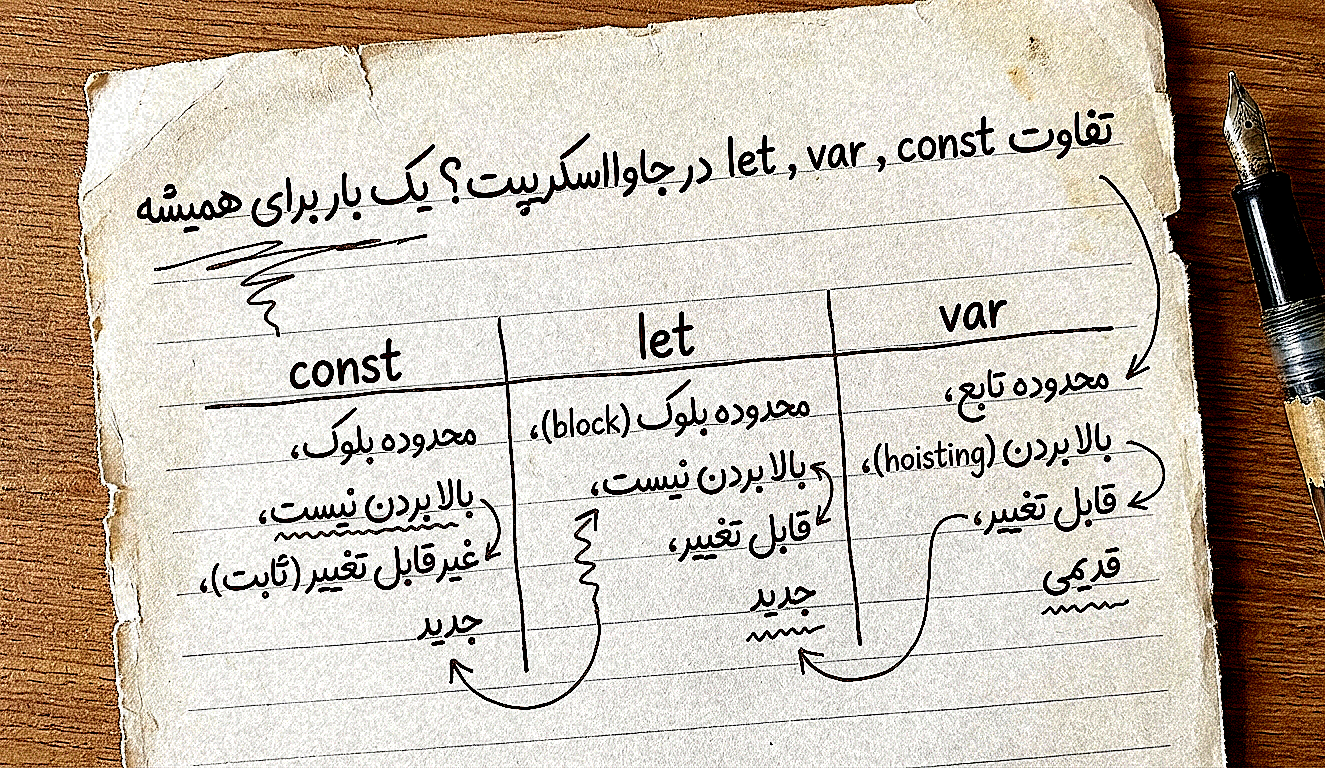 تفاوت let , var , const در جاوااسکریپت؟ یک بار برای همیشه
var
محدوده تابع،
بالا بردن (hoisting)،
قابل تغییر،
قدیمی
let
محدوده بلوک (block)،
بالا بردن نیست،
قابل تغییر،
جدید
const
محدوده بلوک،
بالا بردن نیست،
غیرقابل تغییر (ثابت)،
جدید